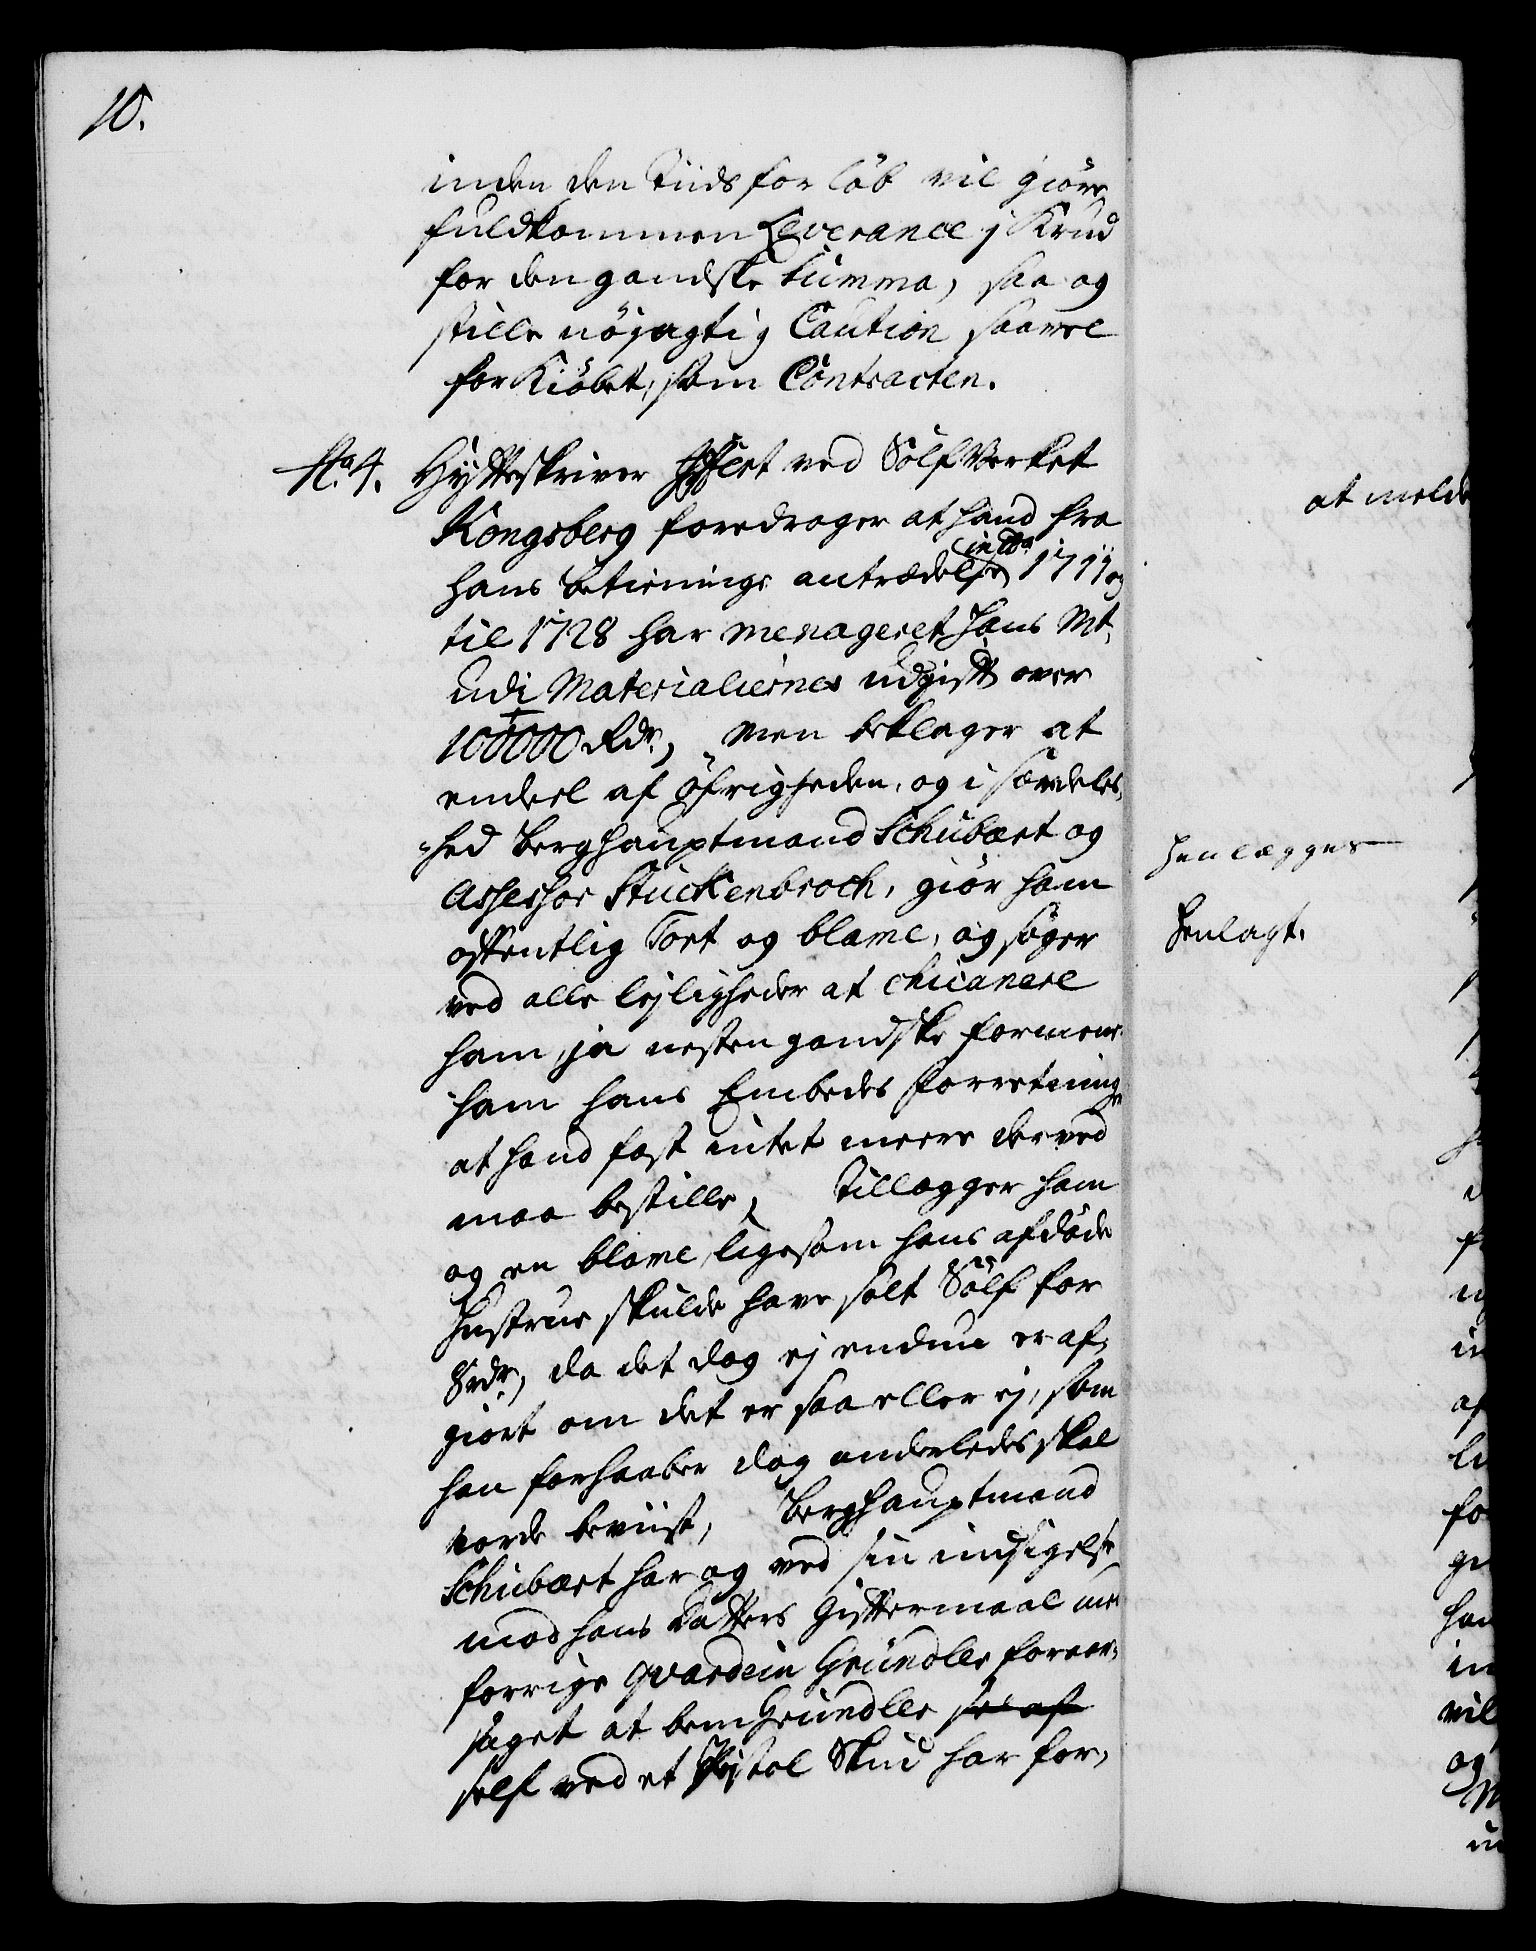 10.
inden den Tiids forløb vil giøre
fuldkommen Leverance j Krud
for den gandske Summa, saa og
stille nöjagtig Caution saavel
for Kiöbet, som Contracten.
No. 4. Hytteskriver ved Sölf Verket
Kongsberg foredrager at hand fra
hans betienings antrædelse in Ao 1711 og
til 1728 har menageret Hans Mt.
udi Materialiernes udgift over
100000 Rdr, men beklager at
endeel af öfrigheden, og i særdeles-
hed Berghauptmand Schubart og
Assessor Stuckenbroch, giör ham
offentlig Tort og blame, og söger
ved alle lejligheder at chicanere
ham, ja nesten gandske formene
ham hans Embedes forretninger
at hand fast intet meere derved
maa bestille, Tillegger ham
og en blame, ligesom hans afdöde
Hustrue skulde have solt Sölf for
8 rdr, da det dog ej endnu er af-
giort om det er saa eller ej, som
han forhaaber dog anderledes skal
vorde beviist, Berghauptmand
Schubart har og ved sin indsigelse
mod hans Datters Giftermaal med
forrige Qvardein Gründler foraar-
saget at bem Gründler
self ved et Pistol Skud har for-
at melde
Henlægges
Henlagt.